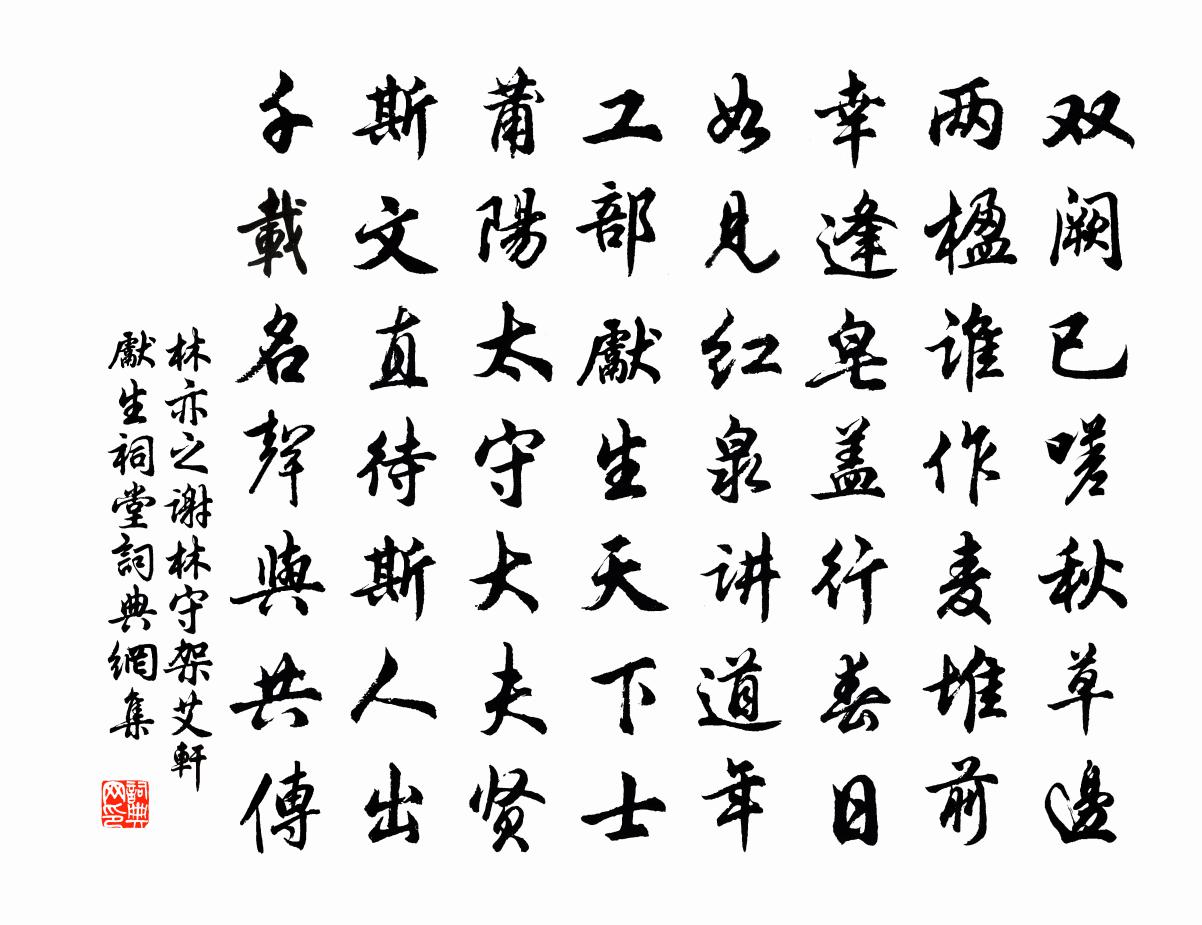 双阙已嗟秋草边
两楹谁作麦堆前
幸逢皂盖行春日
如见红泉讲道年
工部獻生天下士
莆陽太守大夫贤
斯文直待斯人出
千載名聲與共傳
林亦之谢林守架艾軒
獻生祠堂詞典網集
詞典网印